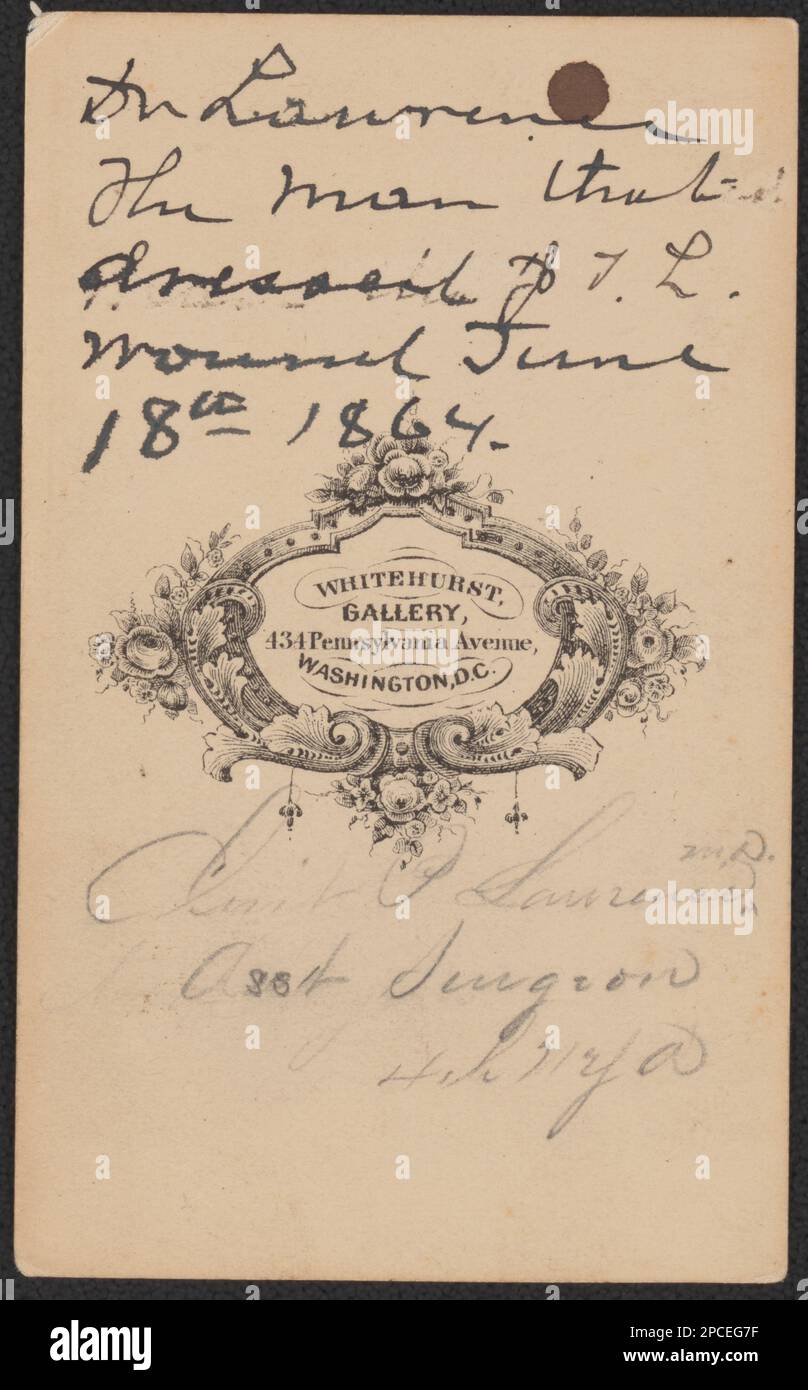 Dr Lawrence
The man that
dressed J. L.
wound June
18th 1864.
WHITEHURST,
GALLERY,
434 Pennsylvania Avenue,
WASHINGTON, D.C.
P Lawrence M.D.
Asst Surgeon
4th NYA
alamy
Image ID: 2PCEG7F
www.alamy.com